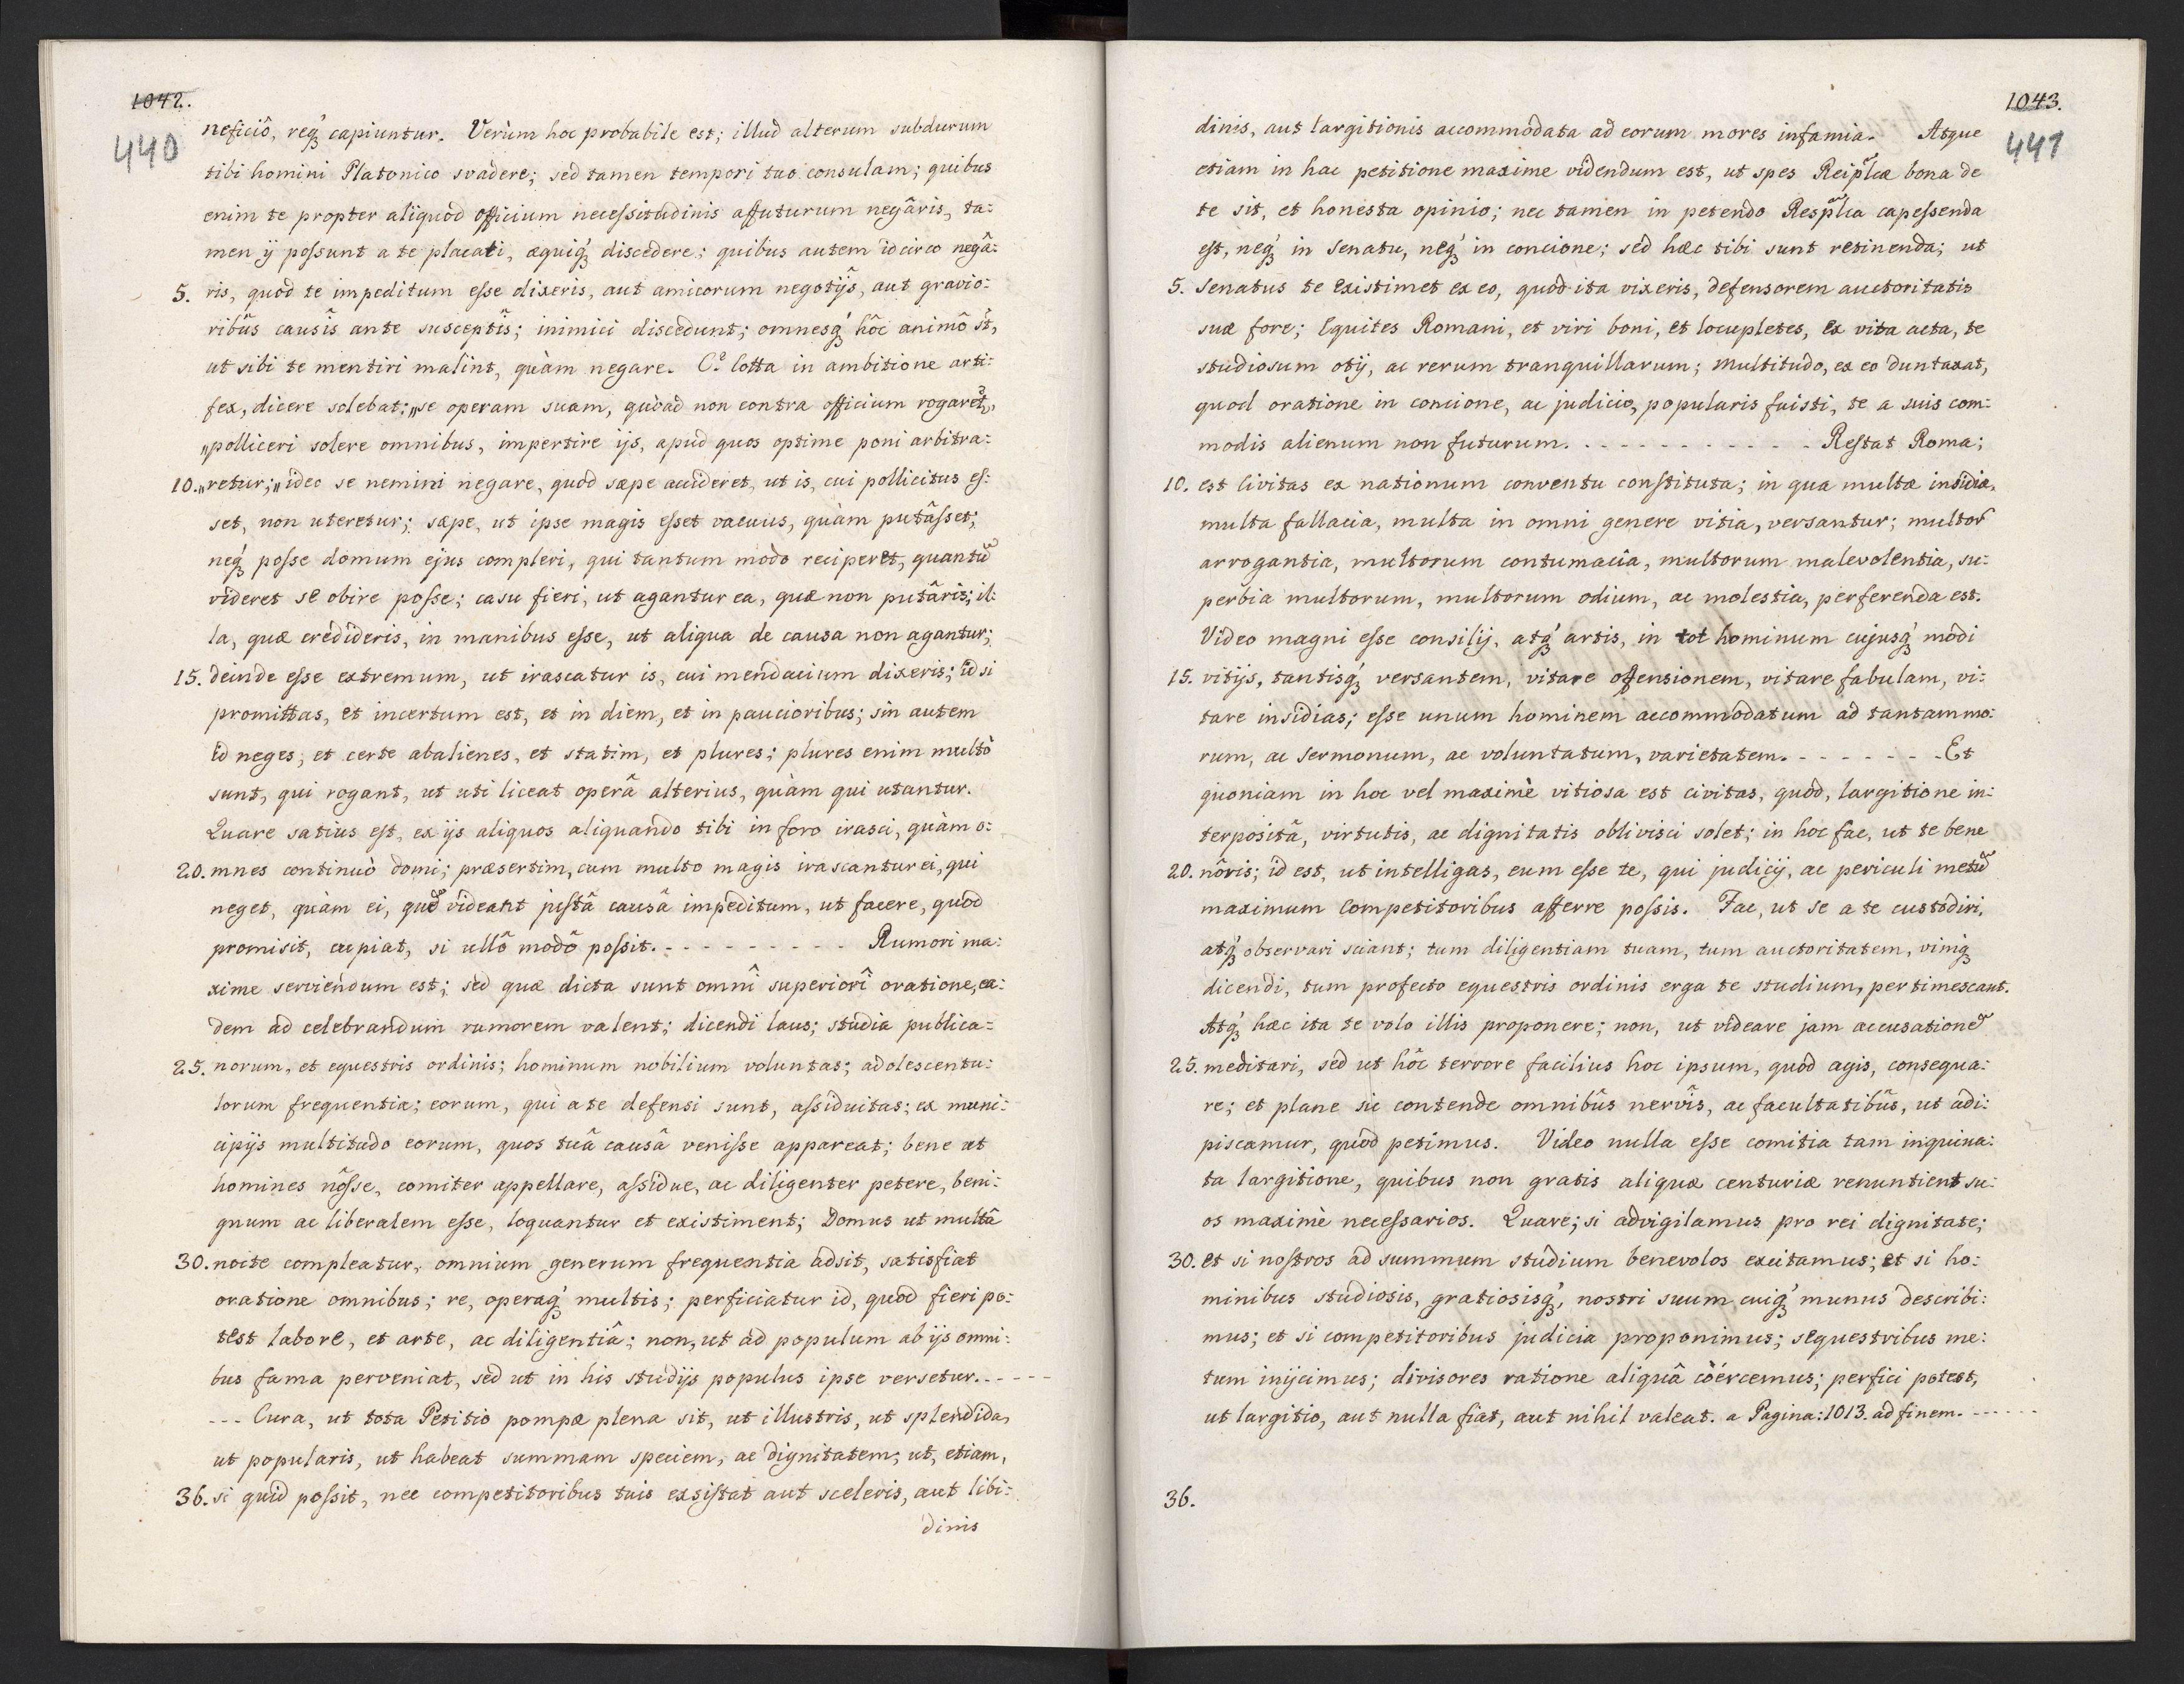 1042.
440
neficiô, req́ʒ capiuntur. Verùm hoc probabile est; illud alterum subdurum
tibi homini Platonico svadere; sed tamen tempori tuo consulam; quibus
enim te propter aliquod officium necessitudinis affuturum negâris, ta:
men ij possunt a te placati, æquiq́ʒ discedere; quibus autem idcirco negâ:
5. ris, quòd te impeditum esse dixeris, aut amicorum negotijs̑, aut gravio:
ribûs causîs ante susceptîs; inimici discedunt; omnesq́ hôc animô st̑,
ut sibi te mentiri malint, quàm negare. C.ª Cotta in ambitione arti:
fex, dicere solebat; „se operam suam, quòad non contra officium rogaret̑,
„polliceri solere omnibus, impertire ijs, apud quos optime poni arbitra:
10. „retur;„ ideo se nemini negare, quòd sæpe accideret, ut is, cui pollicitus es:
set, non uteretur; sæpe, ut ipse magis esset vacuus, quàm putâsset;
neq́ʒ posse domum ejus compleri, qui tantum modo reciperet, quantũ
videret se obire posse; casu fieri, ut agantur ea, quæ non putâris; il:
la, quæ credideris, in manibus esse, ut aliqua de causa non agantur;
15. deinde esse extremum, ut irascatur is, cui mendacium dixeris; id si
promittas, et incertum est, et in diem, et in paucioribus; sin autem
id neges, et certe abalienes, et statim, et plures; plures enim multò
sunt, qui rogant, ut uti liceat operâ alterius, quàm qui utantur.
Quare satius est, ex ijs aliquos aliquando tibi in foro irasci, quàm o:
20. mnes continuò domi; præsertim, cum multo magis irascantur ei, qui
neget, quàm ei, quẽ videant justâ causâ impeditum, ut facere, quòd
promisit, cupiat, si ullô modô possit. - - - - - - - - - - Rumori ma:
xime serviendum est; sed quæ dicta sunt omnî superiorî oratione, ea:
dem ad celebrandum rumorem valent; dicendi laus; studia publica:
25. norum, et equestris ordinis; hominum nobilium voluntas; adolescentu:
lorum frequentia; eorum, qui a te defensi sunt, assiduitas; ex muni:
cipijs multitudo eorum, quos tuâ causâ venisse appareat; bene ut
homines nôsse, comiter appellare, assidue, ac diligenter petere, beni:
gnum ac liberalem esse, loquantur et existiment; Domus ut multâ
30. nocte compleatur, omnium generum frequentia adsit, satisfiat
oratione omnibus; re, operaq́ multis; perficiatur id, quod fieri po:
test labore, et arte, ac diligentiâ; non, ut ad populum ab ijs omni:
bus fama perveniat, sed ut in his studijs populus ipse versetur. - - - - -
- - - Cura, ut tota Petitio pompæ plena sit, ut illustris, ut splendida,
ut popularis, ut habeat summam speciem, ac dignitatem; ut, etiam,
36. si quid possit, nec competitoribus tuis exsistat aut sceleris, aut libi:
dinis
1043.
441
dinis, aut largitionis accommodata ad eorum mores infamia. Atque
etiam in hac petitione maxime videndum est, ut spes Reip̃lcæ bona de
te sit, et honesta opinio; nec tamen in petendo Resp̃lca capessenda
est, neq́ʒ in Senatu, neq́ in concione; sed hæc tibi sunt retinenda; ut
5. Senatus te existimet ex eo, quòd ita vixeris, defensorem auctoritatis
suæ fore; Equites Romani, et viri boni, et locupletes, ex vita acta, te
studiosum otij, ac rerum tranquillarum; multitudo, ex eo duntaxat,
quod oratione in concione, ac judicio, popularis fuisti, te a suis com:
modis alienum non futurum. - - - - - - - - - - - Restat Roma;
10. est Civitas ex nationum conventu constituta; in qua multæ insidiæ,
multa fallacia, multa in omni genere vitia, versantur; multor̃
arrogantia, multorum contumacia, multorum malevolentia, su:
perbia multorum, multorum odium, ac molestia, perferenda est.
Video magni esse consilij, atq́ʒ artis, in tot hominum cujusq́ʒ modi
15. vitijs, tantisq́ʒ versantem, vitare offensionem, vitare fabulam, vi:
tare insidias; esse unum hominem accommodatum ad tantam mo:
rum, ac sermonum, ac voluntatum, varietatem. - - - - - - - Et
quoniam in hoc vel maximè vitiosa est civitas, quòd, largitione in:
terpositâ, virtutis, ac dignitatis oblivisci solet; in hoc fac, ut te bene
20. nôris; id est, ut intelligas, eum esse te, qui judicij, ac periculi metũ
maximum competitoribus afferre possis. Fac, ut se a te custodiri,
atq́ʒ observari sciant; tum diligentiam tuam, tum auctoritatem, vimqʒ
dicendi, tum profecto equestris ordinis erga te studium, pertimescant.
Atq́ʒ hæc ita te volo illis proponere; non, ut videare jam accusationẽ
25. meditari, sed ut hôc terrore facilius hoc ipsum, quòd agis, consequa:
re; et plane sic contende omnibûs nervîs, ac facultatibûs, ut adi:
piscamur, quòd petimus. Video nulla esse comitia tam inquina:
ta largitione, quibus non gratis aliquæ centuriæ renuntient su:
os maximè necessarios. Quare; si advigilamus pro rei dignitate;
30. et si nostros ad summum studium benevolos excitamus; et si ho:
minibus studiosis, gratiosisq́ʒ, nostri suum cuiq́ʒ munus describi:
mus; et si competitoribus judicia proponimus; sequestribus me:
tum inijcimus; divisores ratione aliquâ coërcemus; perfici potest,
ut largitio, aut nulla fiat, aut nihil valeat. a Pagina: 1013. ad finem. - - - - - -
36.